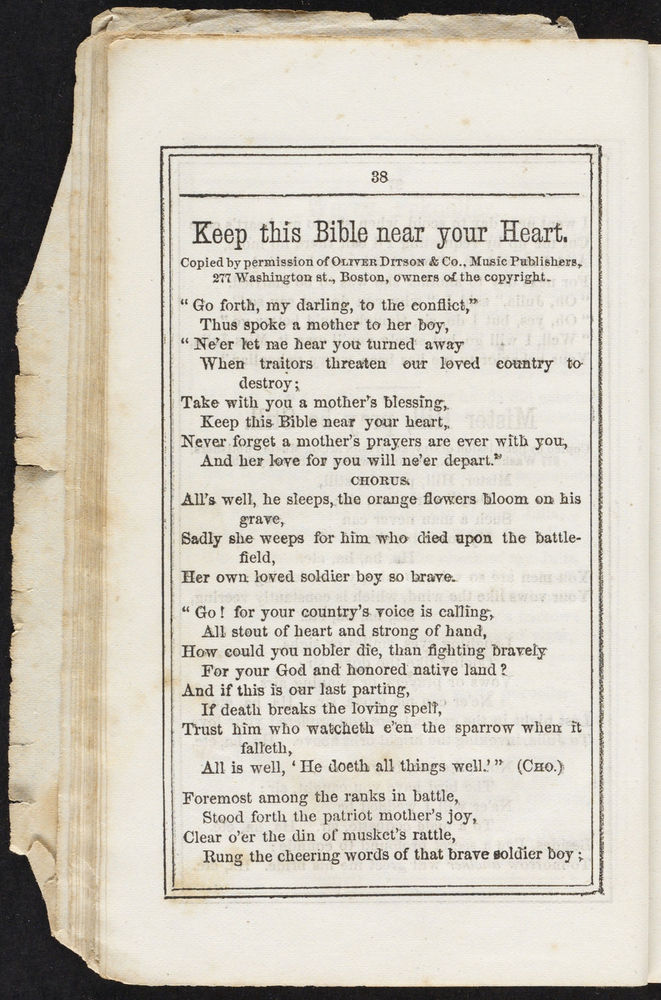 38
Keep this Bible near your Heart.
Copied by permission of OLIVER DITSON & Co., Music Publishers,
277 Washington st., Boston, owners of the copyright.
“ Go forth, my darling, to the conflict,”
Thus spoke a mother to her boy,
“ Ne’er let me hear you turned away
When traitors threaten our loved country to
destroy;
Take with you a mother’s blessing,
Keep this Bible near your heart,
Never forget a mother’s prayers are ever with you,
And her love for you will ne’er depart.”
CHORUS.
All’s well, he sleeps, the orange flowers bloom on his
grave,
Sadly she weeps for him who died upon the battle-
field,
Her own loved soldier boy so brave.
“ Go ! for your country’s voice is calling,
All stout of heart and strong of hand,
How could you nobler die, than fighting bravely
For your God and honored native land ?
And if this is our last parting,
If death breaks the loving spell,
Trust him who watcheth e’en the sparrow when it
falleth,
All is well, ‘ He doeth all things well.’ ” (CHO.)
Foremost among the ranks in battle,
Stood forth the patriot mother’s joy,
Clear o’er the din of musket’s rattle,
Rung the cheering words of that brave soldier boy ;